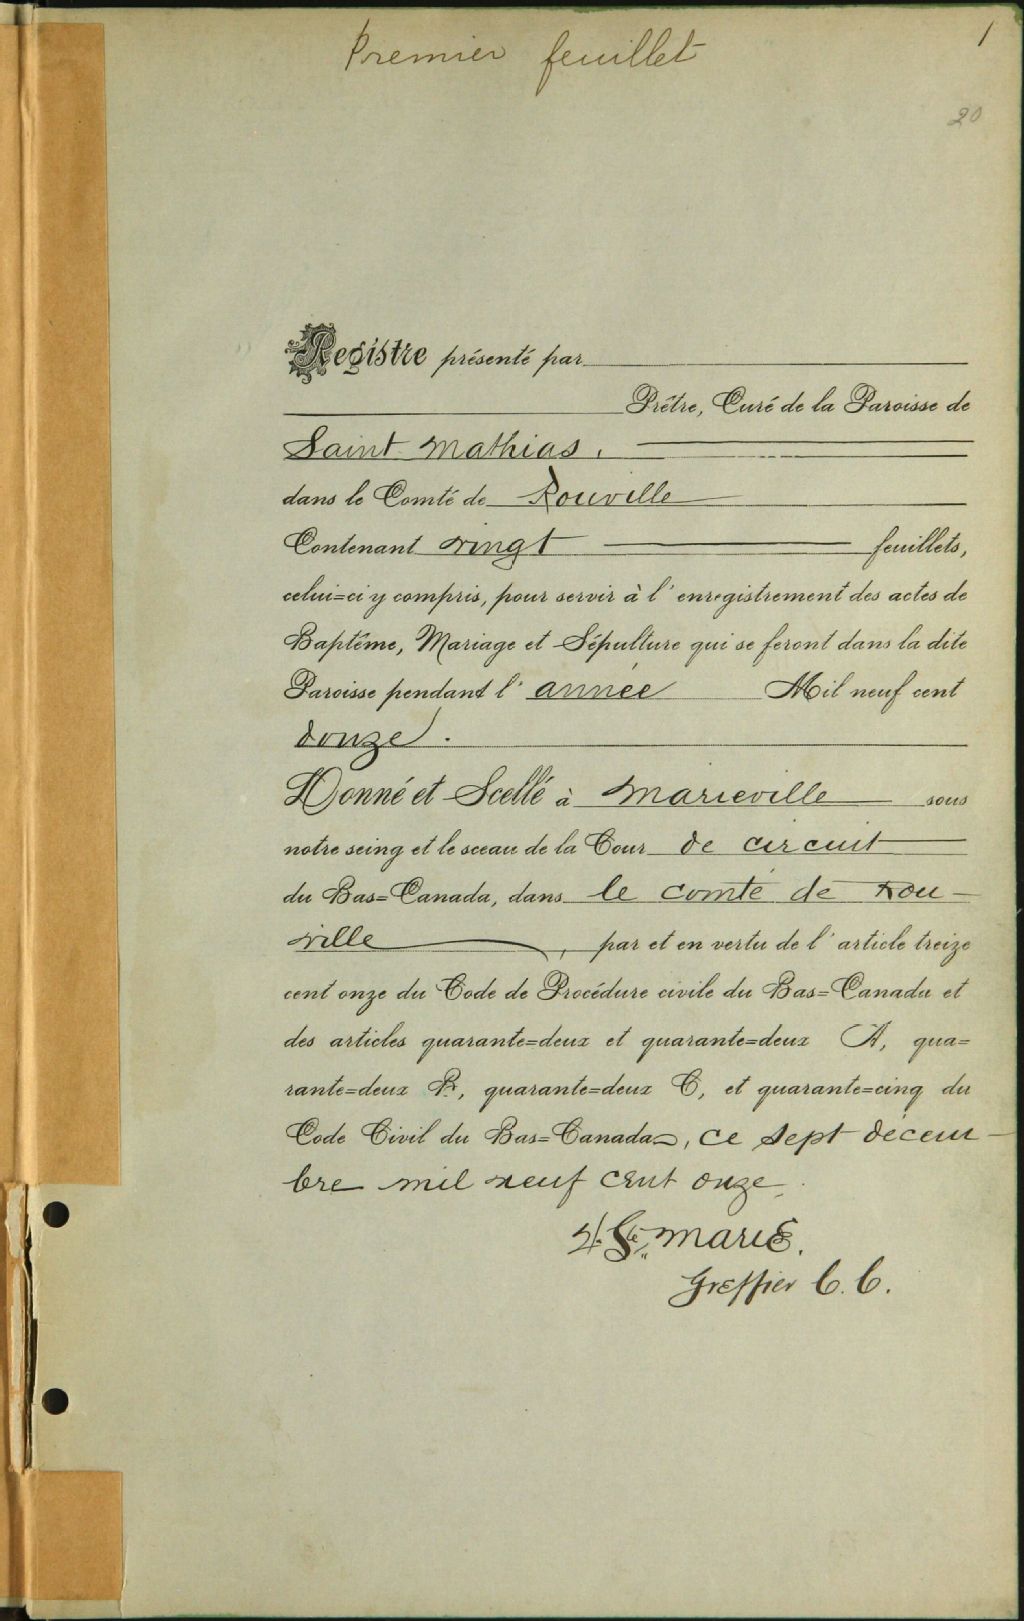 Premier feuillet
1
20
Registre présenté par
Prêtre, Curé de la Paroisse de
Saint Mathias.
dans le Comté de Rouville
Contenant vingt feuillets,
celui=ci y compris, pour servir à l'enregistrement des actes de
Baptême, Mariage et Sépulture qui se feront dans la dite
Paroisse pendant l'année Mil neuf cent
douze.
Donné et Scellé à Marieville sous
notre seing et le sceau de la Cour de circuit
du Bas=Canada, dans le comté de Rou-
ville, par et en vertu de l'article treize
cent onze du Code de Procédure civile du Bas=Canada et
des articles quarante=deux et quarante=deux A, qua=
rante=deux B, quarante=deux C, et quarante=cinq du
Code Civil du Bas=Canada, ce sept décem-
bre mil neuf cent onze.
Ste Marie.
Greffier C. C.